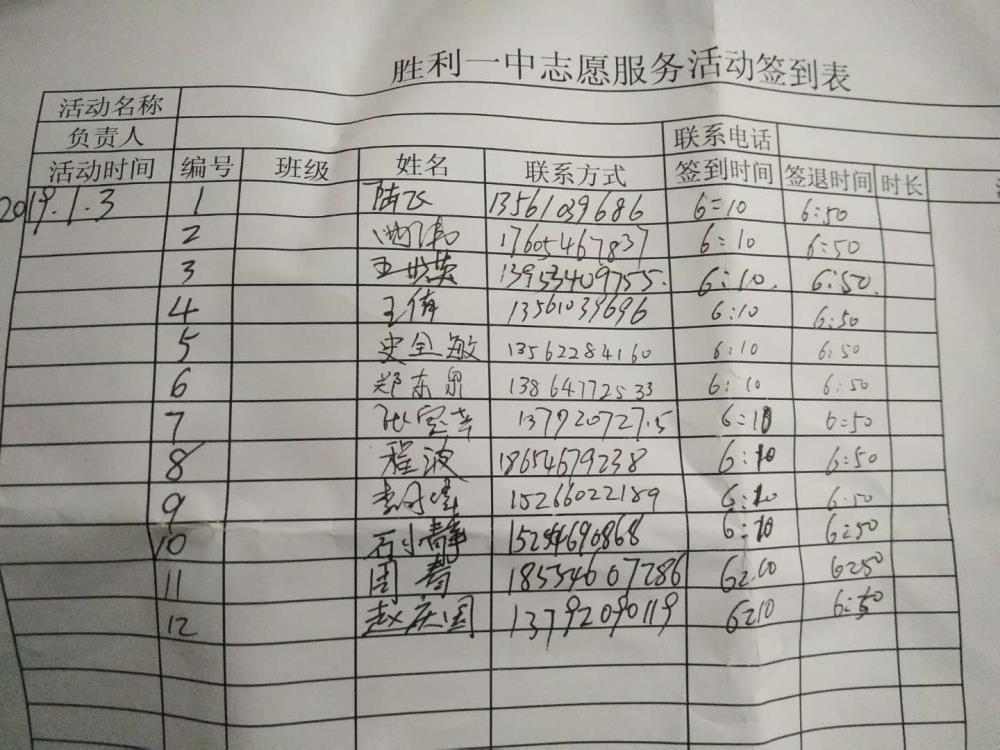 胜利一中志愿服务活动签到表
活动名称
负责人 联系电话
活动时间 编号 班级 姓名 联系方式 签到时间 签退时间 时长
2019.1.3 1 陆飞 13561039686 6:10 6:50
2 17605467837 6:10 6:50
3 13953409755. 6:10. 6:50.
4 王倩 13561039696 6:10 6:50
5 史全敏 13562284160 6:10 6:50
6 郑东泉 13864772533 6:10 6:50
7 6:10 6:50
8 程波 18654679238 6:10 6:50
9 15266022189 6:10 6:50
10 石小静 15254690868 6:10 6:50
11 周 18554607286 6:10 6:50
12 赵庆国 13792090119 6:10 6:50